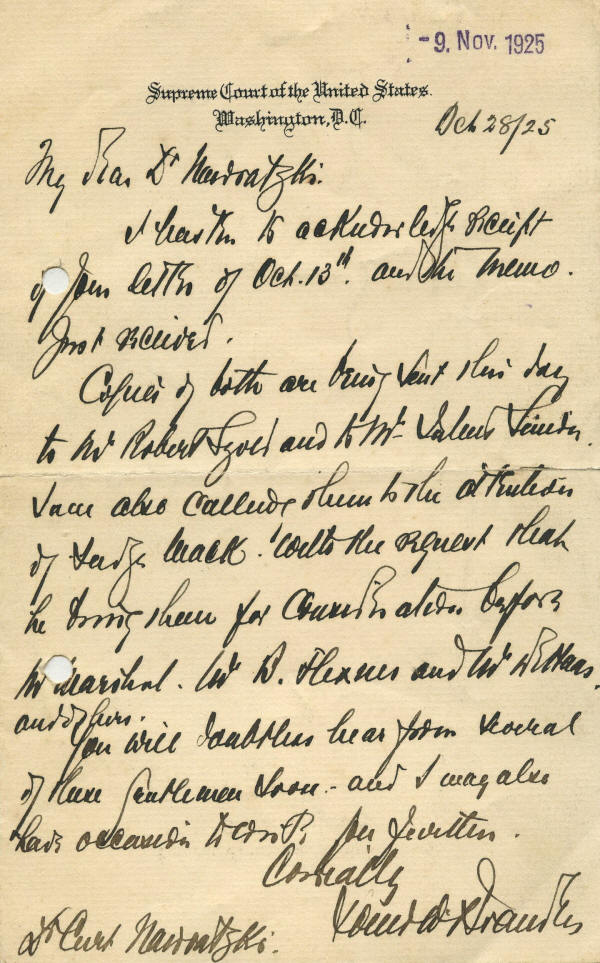 -9. Nov. 1925
Supreme Court of the United States.
Washington, D.C.
Oct 28/25
My dear Dr Nawratzki:
I hasten to acknowledge receipt
of your letter of Oct. 13th. and the memo.
just received.
Copies of both are being sent this day
to Mr Robert Szold and to Mr Julius Simon.
I am also calling them to the attention
of Judge Mack. with the request that
he bring them for consideration before
Mr Marshall. Mr B. Flexner and Mr DeHaas,
and others.
You will doubtless hear from several
of these gentlemen soon - and I may also
have occasion to write you further.
Cordially
Louis D Brandeis
Dr Curt Nawratzki.